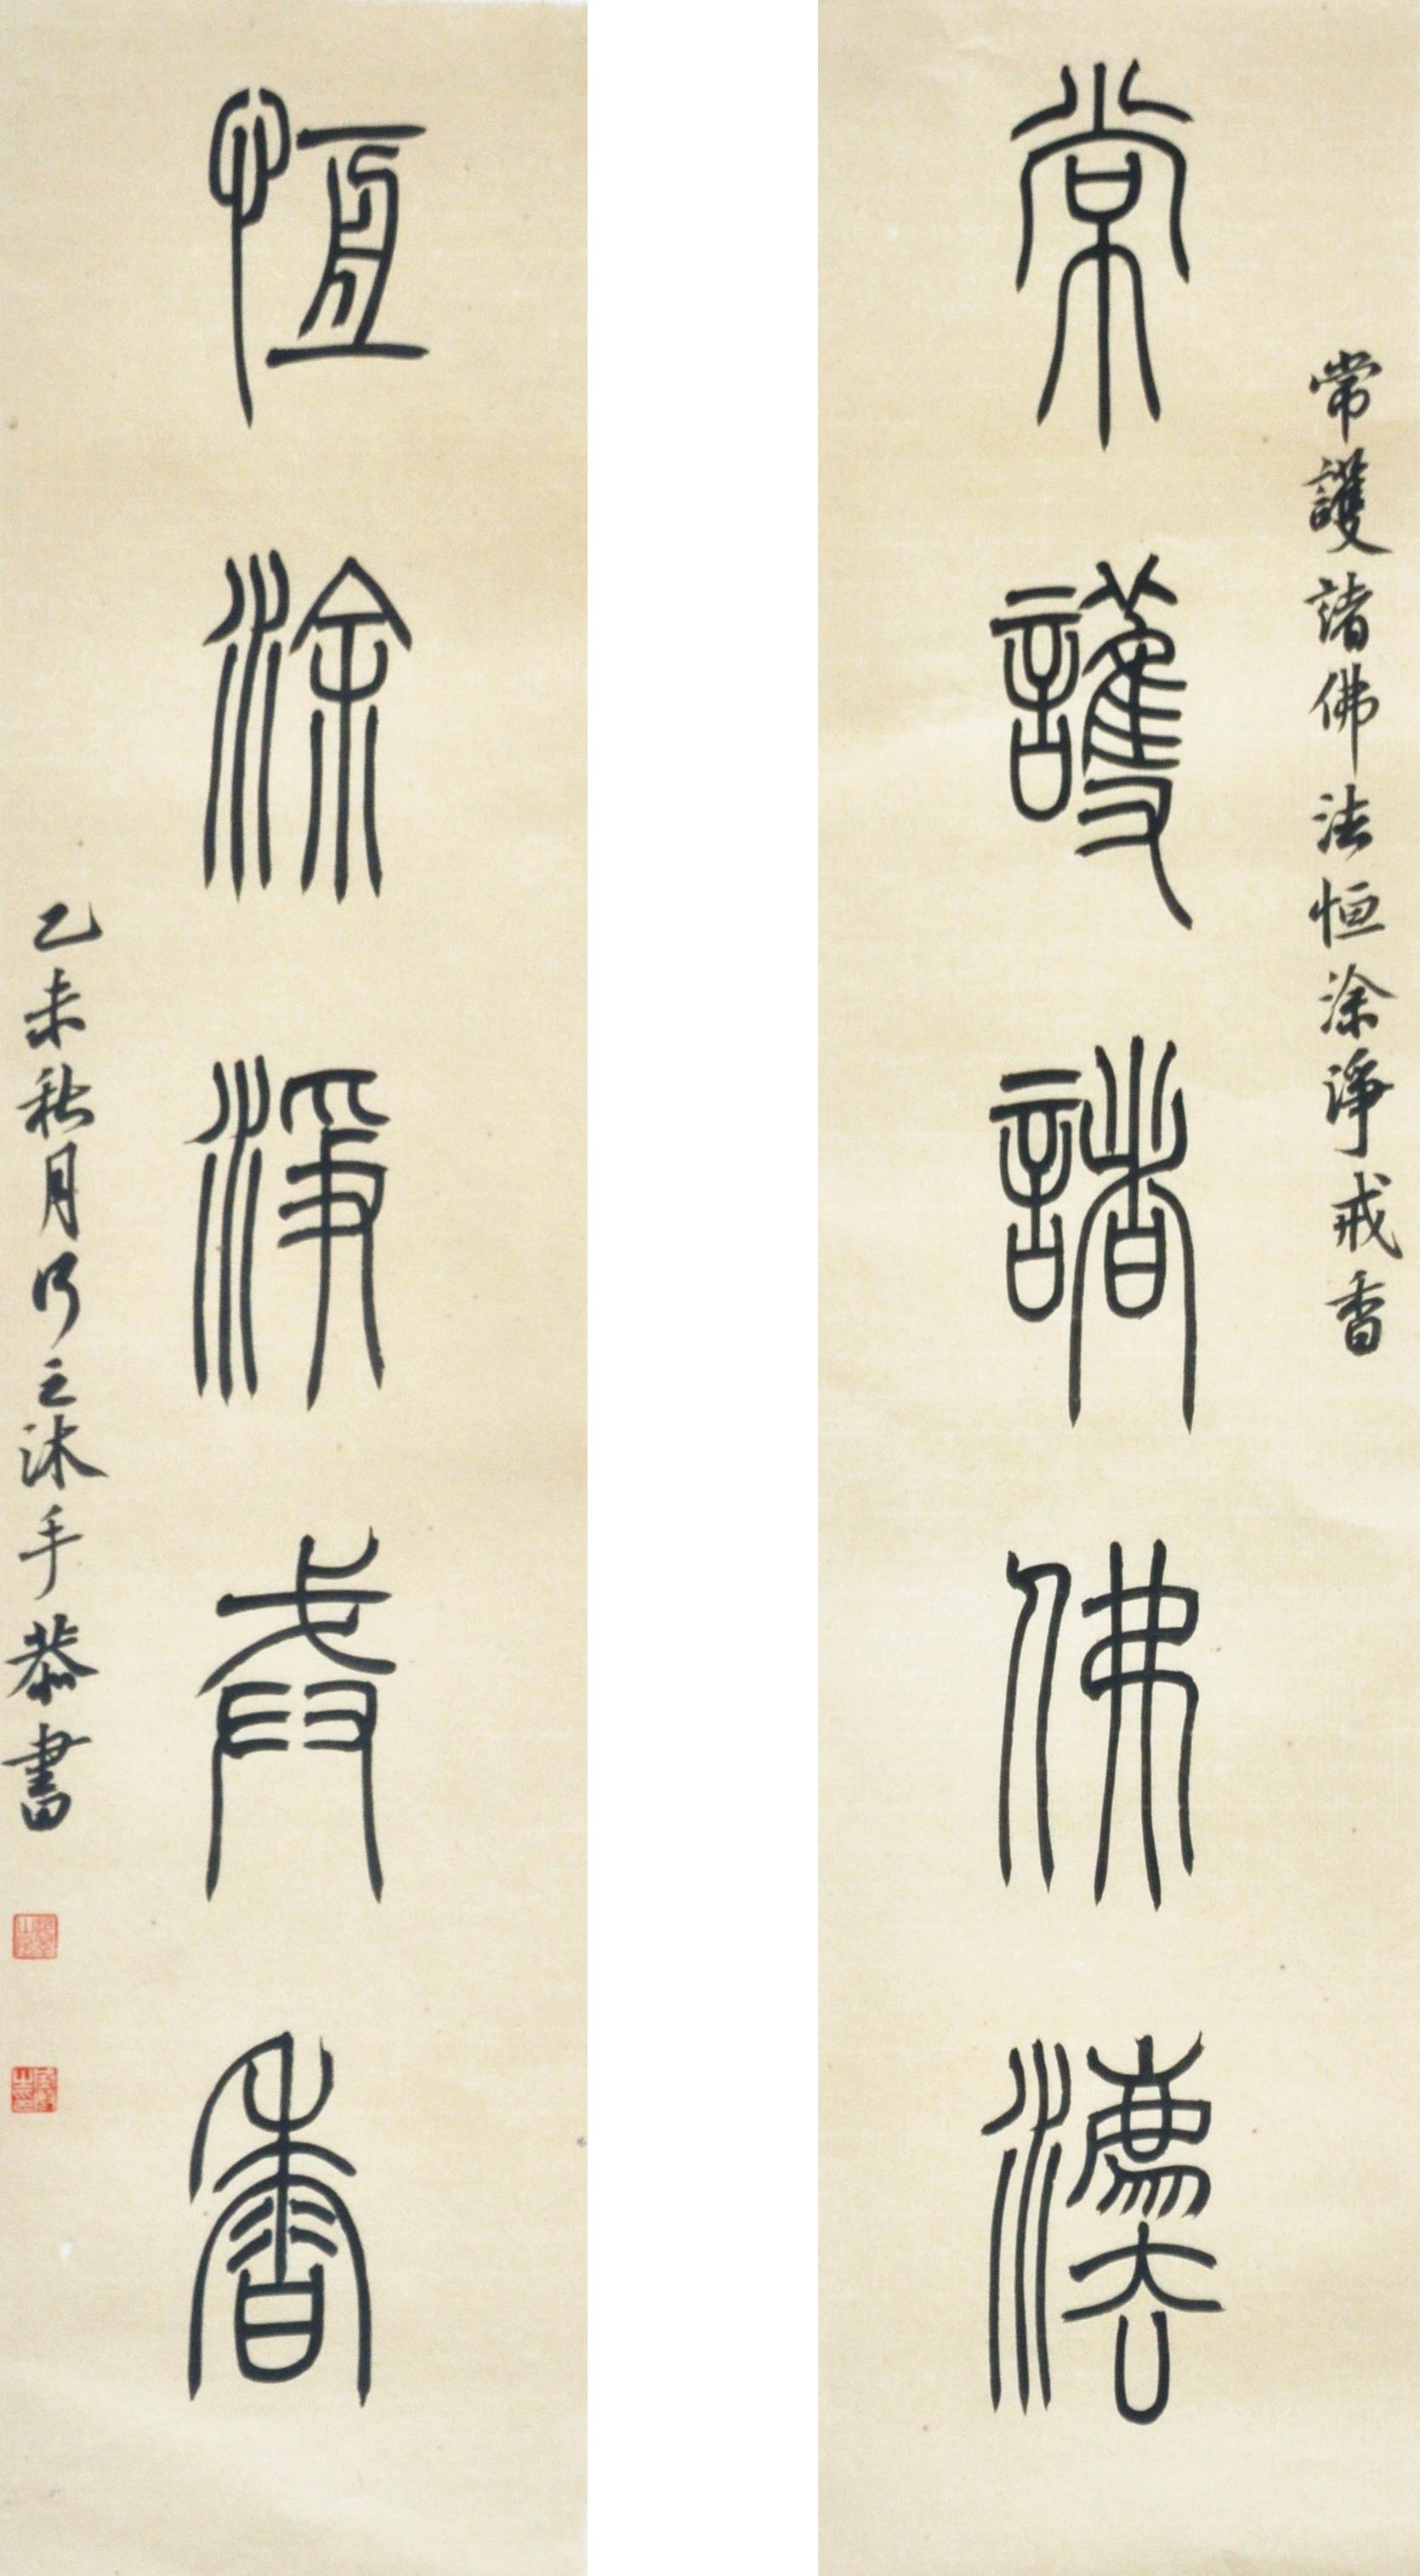 常護諸佛法恒涂淨戒香
常護諸佛灋
恆涂淨戒香
乙未秋月以之沐手恭書